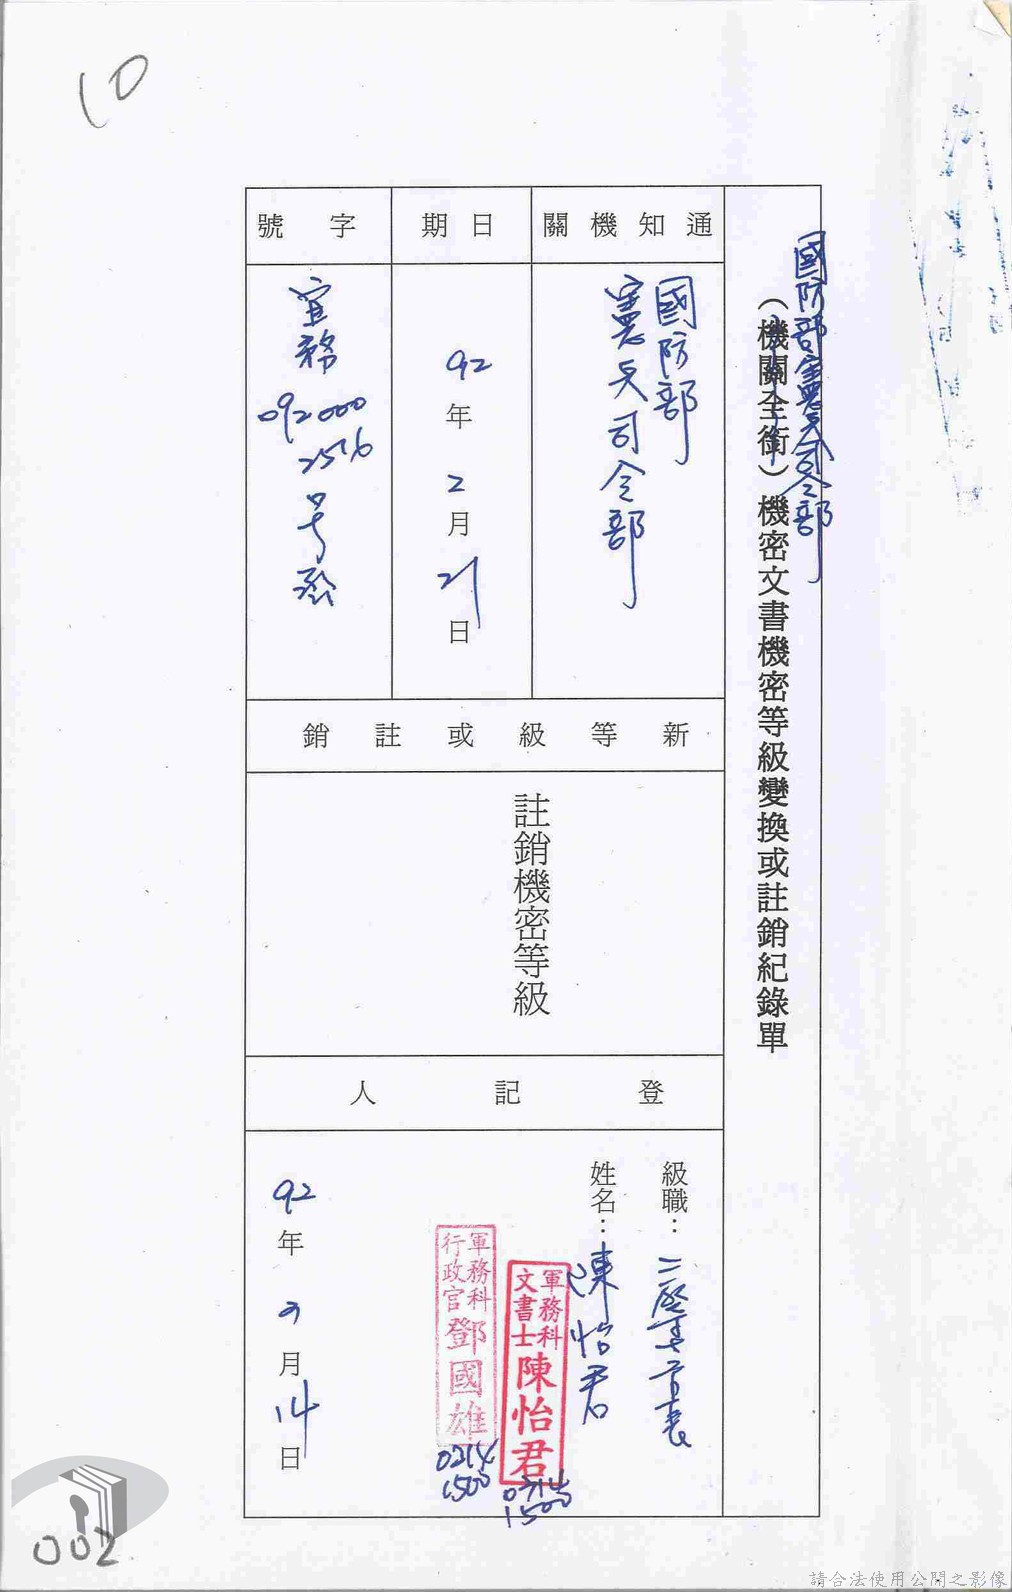 10
國防部憲兵司令部
（機關全銜）機密文書機密等級變換或註銷紀錄單
通知機關
國防部
憲兵司令部
日期
92年2月21日
字號
宜務
092000
2576
号
新等級或註銷
註銷機密等級
登記人
級職：
姓名：陳怡君
軍務科
文書士
陳怡君
軍務科
行政官
鄧國雄
0214
1500
0214
1500
92年2月14日
002
請合法使用公開之影像